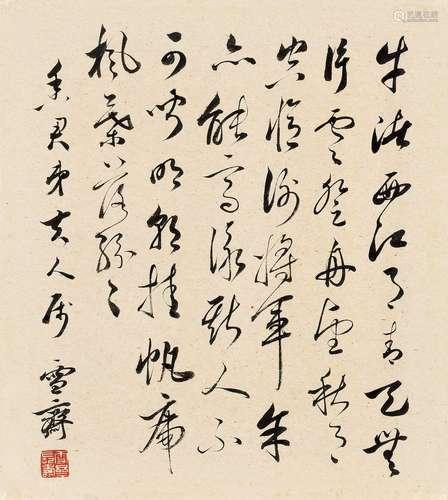 牛渚西江夜青天無
片雲登舟望秋月
空憶謝將軍余
亦能高詠斯人不
可聞明朝挂帆席
楓葉落紛々
君弟夫人属 雪齋